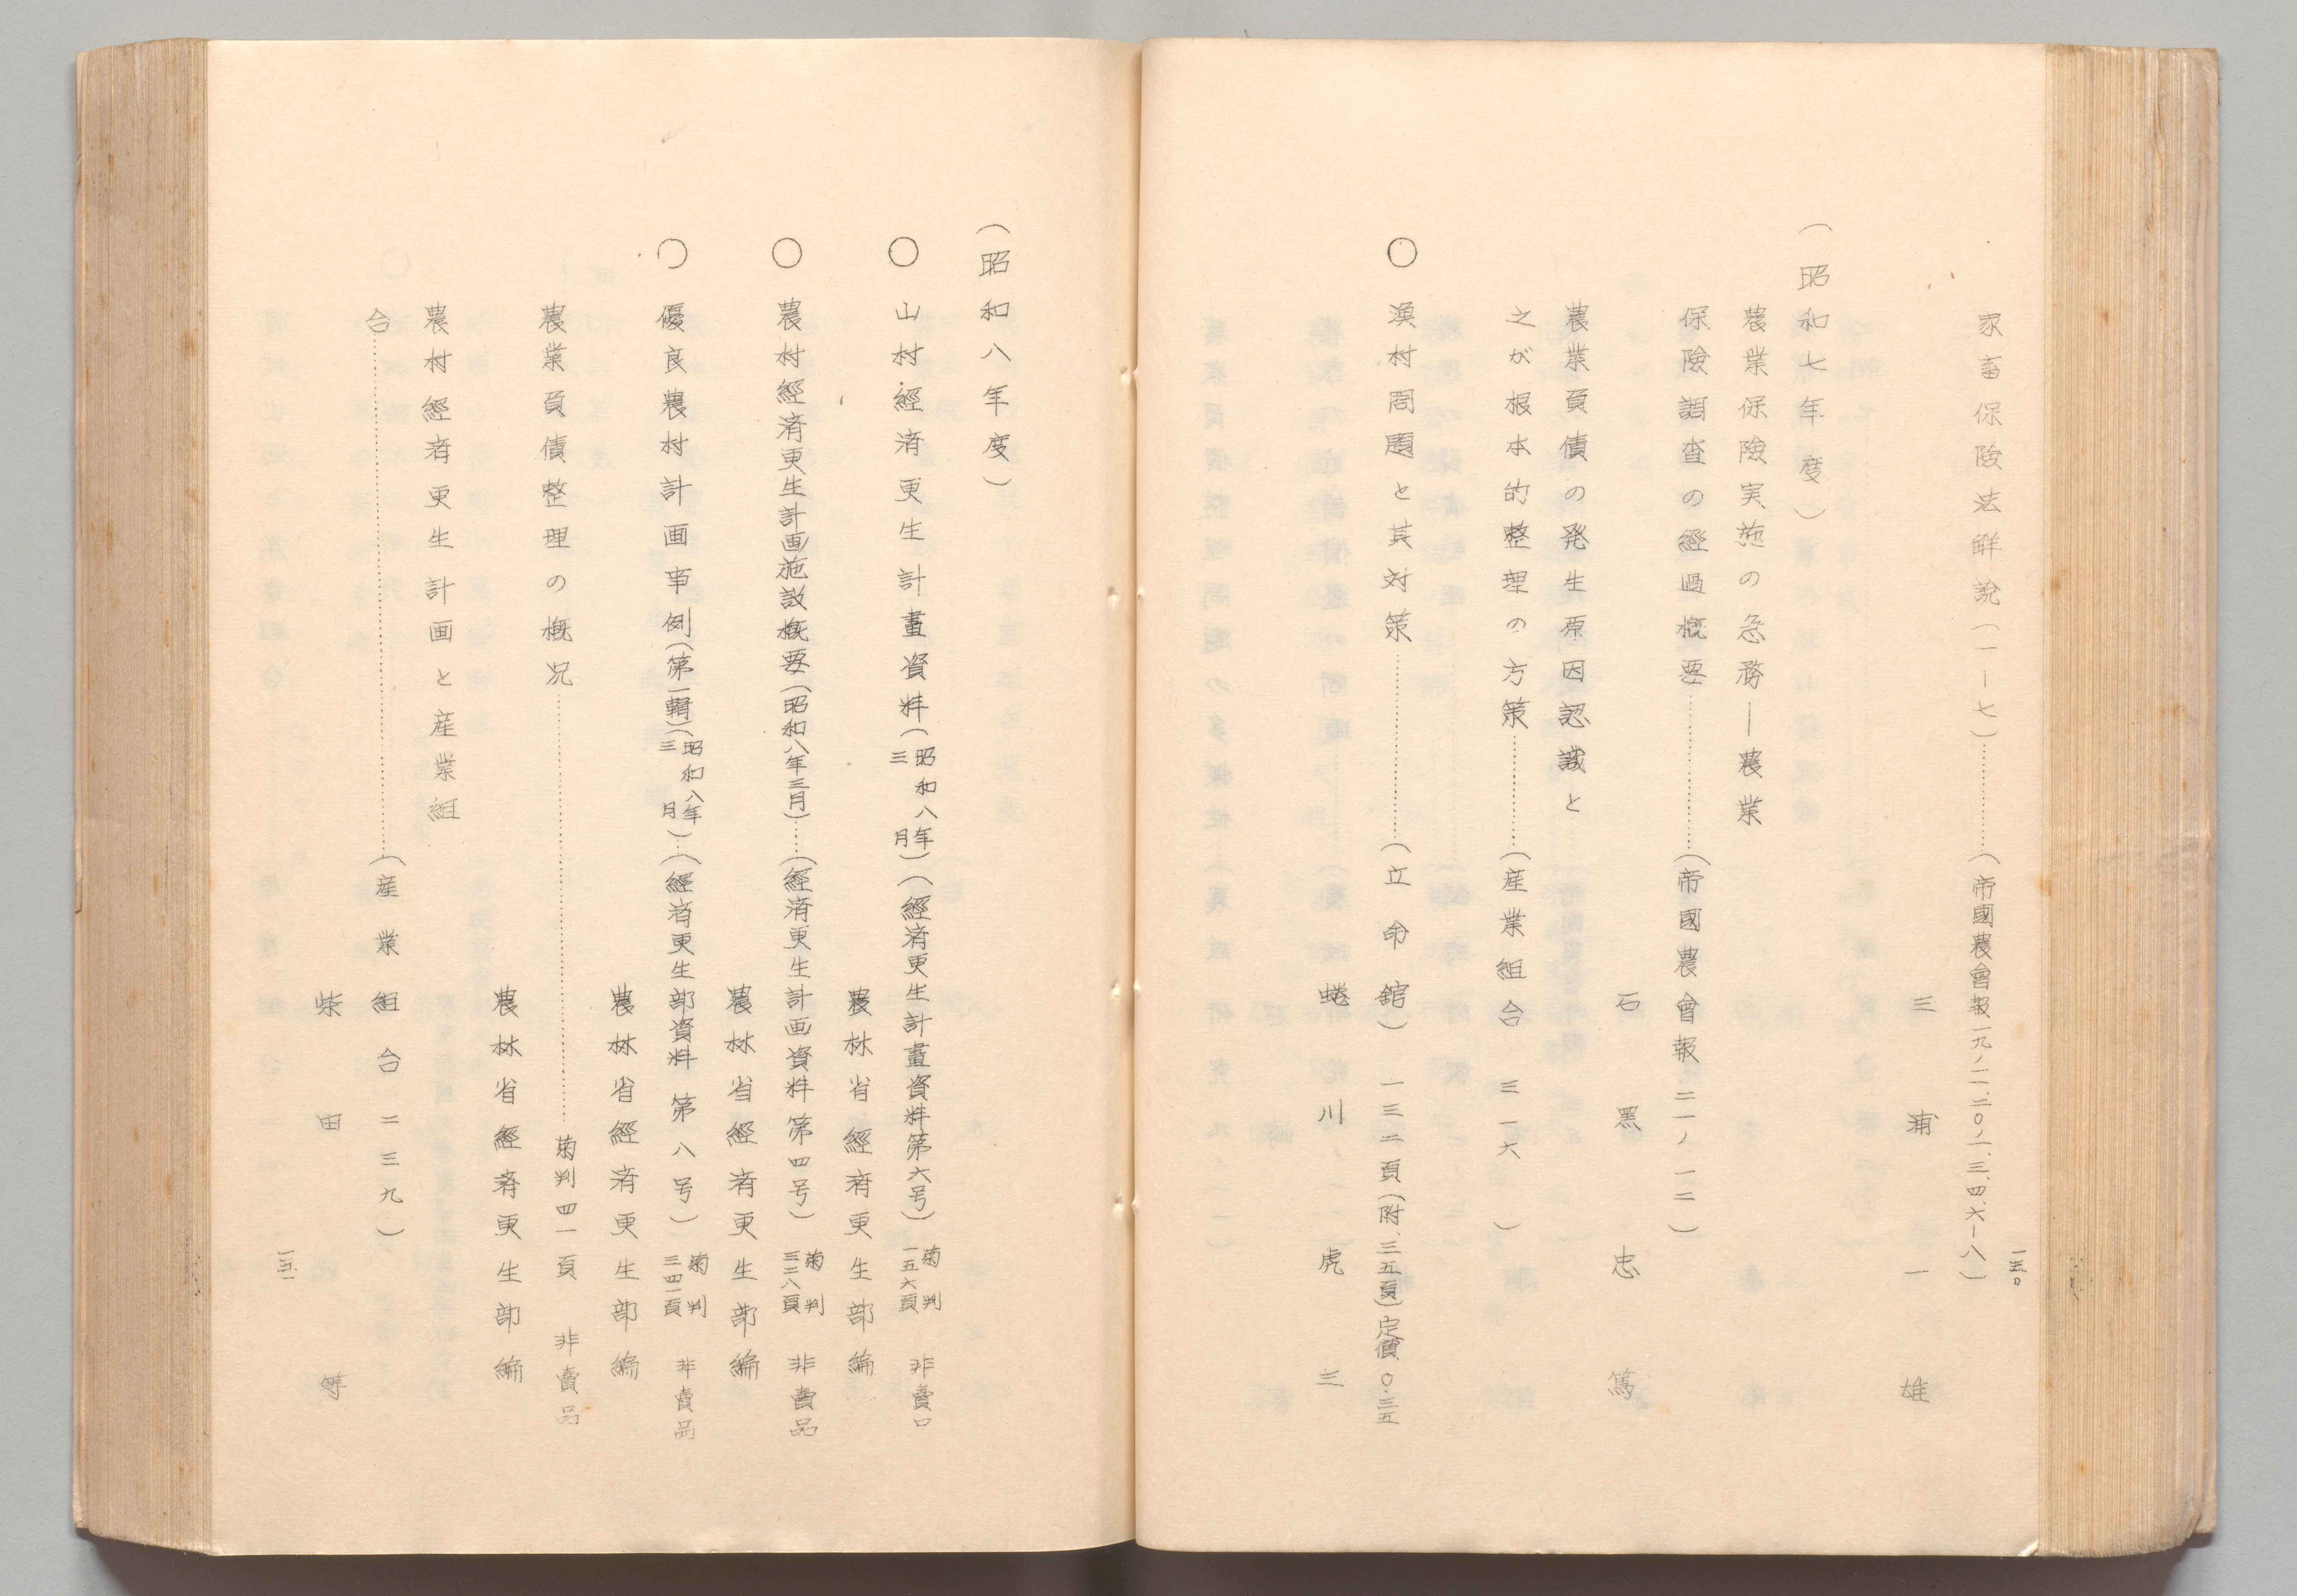 一五〇
家畜保険法解説(一—七)…………(帝國農會報一九ノ二、二〇ノ一、三、四、六—八)
三浦一雄
(昭和七年度)
農業保険実施の急務—農業
保険調査の経過概要…………(帝國農會報二一ノ一二)
石黒忠篤
農業負債の発生原因認識と
之が根本的整理の方策…………(産業組合 三一六)
○漁村問題と其対策…………(立命館) 一三二頁(附、三五頁)定價〇.三五
蜷川虎三
(昭和八年度)
○山村経済更生計畫資料(昭和八年三月)(経済更生計畫資料第六号) 菊判一五六頁 非賣品
農林省経済更生部編
○農村経済更生計画施設概要(昭和八年三月)……(経済更生計画資料第四号) 菊判三二八頁 非賣品
農林省経済更生部編
○優良農村計画事例(第一輯)(昭和八年三月)…(経済更生部資料 第八号) 菊判三四一頁 非賣品
農林省経済更生部編
農業負債整理の概況…………菊判四一頁 非賣品
農林省経済更生部編
農村経済更生計画と産業組
合…………(産業組合 二三九)
柴田等
一五一